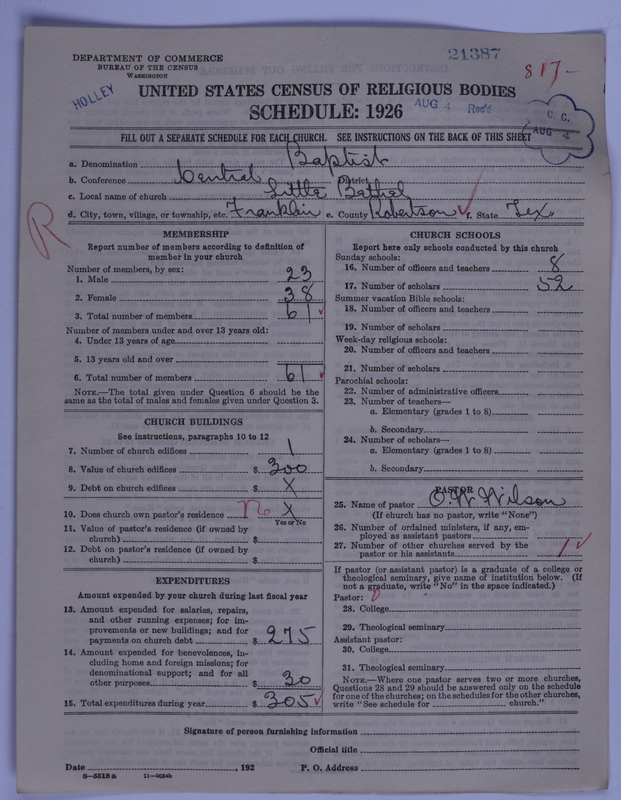 DEPARTMENT OF COMMERCE
BUREAU OF THE CENSUS
WASHINGTON
21387
817-
HOLLEY
UNITED STATES CENSUS OF RELIGIOUS BODIES
SCHEDULE: 1926
AUG 4 Rec'd
C. C.
AUG 4
FILL OUT A SEPARATE SCHEDULE FOR EACH CHURCH. SEE INSTRUCTIONS ON THE BACK OF THIS SHEET
a. Denomination Baptist
b. Conference Central District
c. Local name of church Little Bethel
d. City, town, village, or township, etc. Franklin e. County Robertson f. State Tex.
R
MEMBERSHIP
Report number of members according to definition of
member in your church
Number of members, by sex:
1. Male 23
2. Female 38
3. Total number of members 61
Number of members under and over 13 years old:
4. Under 13 years of age
5. 13 years old and over
6. Total number of members 61
NOTE.—The total given under Question 6 should be the
same as the total of males and females given under Question 3.
CHURCH BUILDINGS
See instructions, paragraphs 10 to 12
7. Number of church edifices 1
8. Value of church edifices $ 300
9. Debt on church edifices $ X
10. Does church own pastor's residence? No X
Yes or No
11. Value of pastor's residence (if owned by
church) $
12. Debt on pastor's residence (if owned by
church) $
EXPENDITURES
Amount expended by your church during last fiscal year
13. Amount expended for salaries, repairs,
and other running expenses; for im-
provements or new buildings; and for
payments on church debt $ 275
14. Amount expended for benevolences, in-
cluding home and foreign missions; for
denominational support; and for all
other purposes $ 30
15. Total expenditures during year $ 305
CHURCH SCHOOLS
Report here only schools conducted by this church
Sunday schools:
16. Number of officers and teachers 8
17. Number of scholars 52
Summer vacation Bible schools:
18. Number of officers and teachers
19. Number of scholars
Week-day religious schools:
20. Number of officers and teachers
21. Number of scholars
Parochial schools:
22. Number of administrative officers
23. Number of teachers—
a. Elementary (grades 1 to 8)
b. Secondary
24. Number of scholars—
a. Elementary (grades 1 to 8)
b. Secondary
PASTOR
25. Name of pastor O. W. Wilson
(If church has no pastor, write "None")
26. Number of ordained ministers, if any, em-
ployed as assistant pastors
27. Number of other churches served by the
pastor or his assistants 1
If pastor (or assistant pastor) is a graduate of a college or
theological seminary, give name of institution below. (If
not a graduate, write "No" in the space indicated.)
Pastor: 0
28. College
29. Theological seminary
Assistant pastor:
30. College
31. Theological seminary
NOTE.—Where one pastor serves two or more churches,
Questions 28 and 29 should be answered only on the schedule
for one of the churches; on the schedules for the other churches,
write "See schedule for church."
Signature of person furnishing information
Official title
Date , 192 P. O. Address
8-5518a 11-9054b